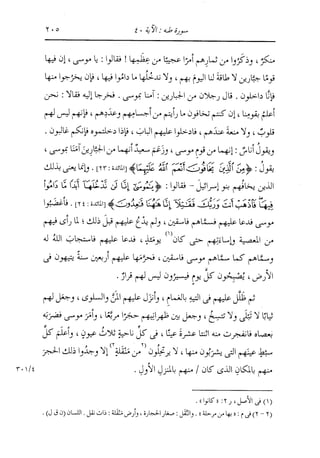 سورة طه : الآية ٤٠
٢٠٥
منكرٌ ، وذكَروا من ثمارِهم أمرًا عجيبًا من عِظَمِها ! فقالوا : يا موسى ، إن فيها
قومًا جبَّارين لا طاقةَ لنا اليومَ بهم ، ولا ندخُلُها ما دامُوا فيها ، فإن يخرُجوا منها
فإنَّا داخلون . قال رجلان من الجبارين : آمنَّا بموسى . فخرجا إليه فقالا : نحن
أعلمُ بقومِنا ، إن كنتم تخافون ما رأيتم من أجسامِهم وعددِهم ، فإنهم ليس لهم
قلوبٌ ، ولا منعةَ عندَهم ، فادخلوا عليهم البابَ ، فإذا دخلتموه فإنكم غالبون .
ويقول أناسٌ : إنهما من قوم موسى ، وزعَم سعيدٌ أنهما من الجبَّارين آمنَا بموسى ،
يقولُ : ﴿ مِنَ الَّذِينَ يَخَافُونَ أَنْعَمَ اللَّهُ عَلَيْهِمَا ﴾ [المائدة : ٢٣] . وإنما يعنى بذلك
الذين يخافُهم بنو إسرائيلَ - فقالوا : ﴿ يَٰمُوسَىٰٓ إِنَّا لَن نَّدْخُلَهَآ أَبَدًا مَّا دَامُوا
فِيهَا فَٱذْهَبْ أَنتَ وَرَبُّكَ فَقَٰتِلَآ إِنَّا هَٰهُنَا قَٰعِدُونَ ﴾ [المائدة : ٢٤] . فأغضَبُوا
موسى فدعا عليهم فسمَّاهم فاسقين ، ولم يدْعُ عليهم قبلَ ذلك ؛ لما رأى فيهم
من المعصيةِ وإساءتِهم حتى كان (١) يومَئذٍ ، فدعا عليهم فاستجابَ اللهُ له
وسمَّاهم كما سمَّاهم موسى فاسقين ، فحرَّمها عليهم أربعين سنةً يتيهون فى
الأرضِ ، يُصْبِحون كلَّ يومٍ فيسيرُون ليس لهم قرارٌ .
ثم ظَلَّل عليهم فى التيهِ بالغمامِ ، وأنزل عليهم المَنَّ والسلوى ، وجعَل لهم
ثيابًا لا تَبْلَى ولا تتسِخُ ، وجعل بينَ ظَهرانَيهم حجرًا مربَّعًا ، وأمَر موسى فضرَبَه
بعصاه فانفجرت منه اثنتا عشرةَ عينًا ، فى كلِّ ناحيةٍ ثلاثُ عيونٍ ، وأعلمَ كلَّ
سبْطٍ عينَهم التى يشرَبُون منها ، لا يرتحلُون (٢) من مَنْقَلَةٍ (٢) إلا وجدُوا ذلك الحجرَ
منهم بالمكانِ الذى كان / منهم بالمنزلِ الأولِ .
٣٠١/٤
(١) فى الأصل ، ر ٢ : « كانوا » .
(٢ - ٢) فى م : « بها من مرحلة » . والنقل : صغار الحجارة ، وأرض منقلة : ذات نقل . اللسان (ن ق ل) .